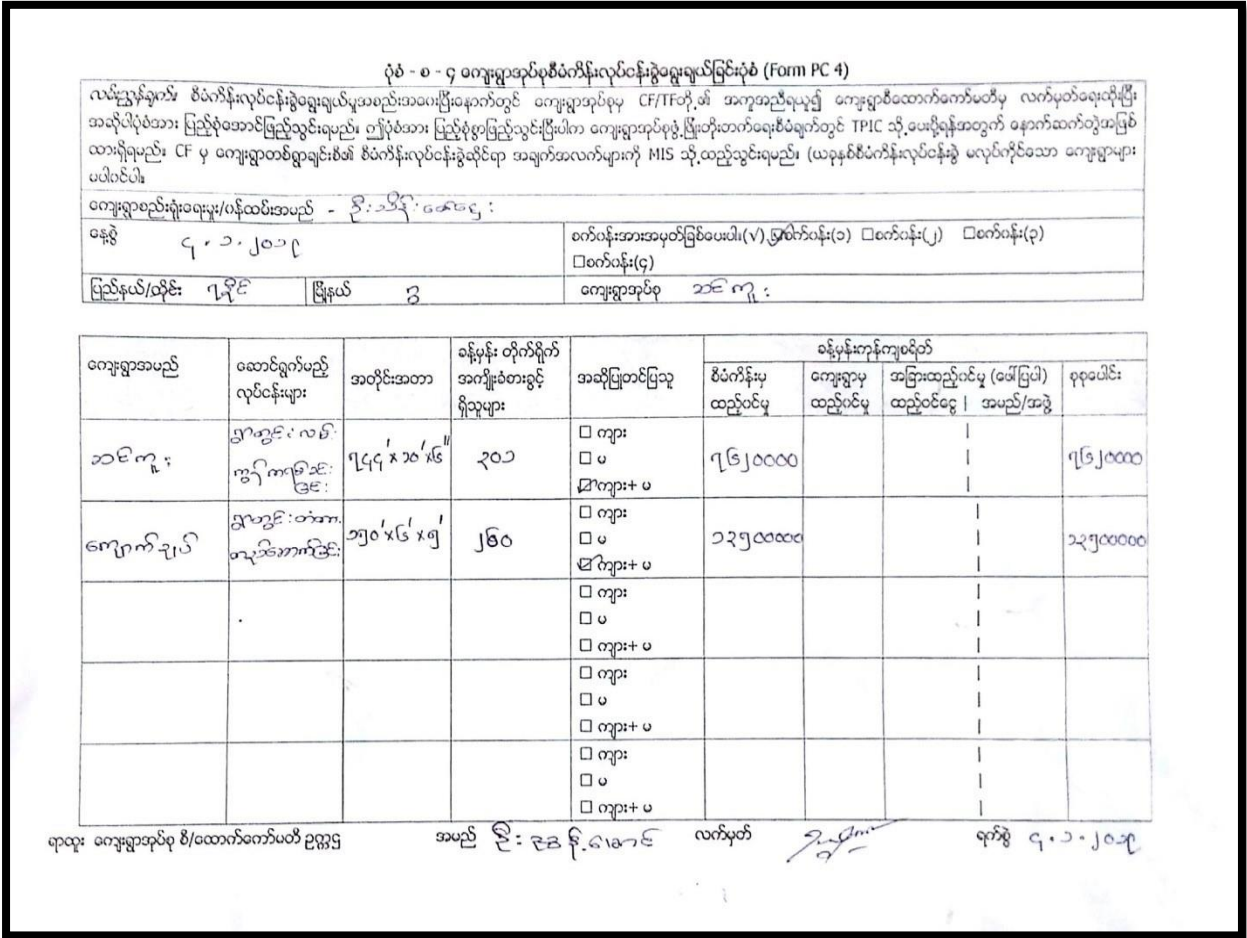 ပုံစံ - စ - ၄ ကျေးရွာအုပ်စုစီမံကိန်းလုပ်ငန်းခွဲရွေးချယ်ခြင်းပုံစံ (Form PC 4)
လမ်းညွှန်ချက်။ စီမံကိန်းလုပ်ငန်းခွဲရွေးချယ်မှုအစည်းအဝေးပြီးနောက်တွင် ကျေးရွာအုပ်စုမှ CF/TFတို့၏ အကူအညီရယူ၍ ကျေးရွာစီထောက်ကော်မတီမှ လက်မှတ်ရေးထိုးပြီး
အဆိုပါပုံစံအား ပြည့်စုံအောင်ဖြည့်သွင်းရမည်။ ဤပုံစံအား ပြည့်စုံစွာဖြည့်သွင်းပြီးပါက ကျေးရွာအုပ်စုဖွံ့ဖြိုးတိုးတက်ရေးစီမံချက်တွင် TPIC သို့ပေးပို့ရန်အတွက် နောက်ဆက်တွဲအဖြစ်
ထားရှိရမည်။ CF မှ ကျေးရွာတစ်ရွာချင်းစီ၏ စီမံကိန်းလုပ်ငန်းခွဲဆိုင်ရာ အချက်အလက်များကို MIS သို့ထည့်သွင်းရမည်။ (ယခုနှစ်စီမံကိန်းလုပ်ငန်းခွဲ မလုပ်ကိုင်သော ကျေးရွာများ
မပါဝင်ပါ။
ကျေးရွာစည်းရုံးရေးမှူး/ဝန်ထမ်းအမည် - ဦးသိန်း
နေ့စွဲ ၄.၁.၂၀၁၉ စက်ဝန်းအားအမှတ်ခြစ်ပေးပါ။(√) ☑စက်ဝန်း(၁) ☐စက်ဝန်း(၂) ☐စက်ဝန်း(၃)
☐စက်ဝန်း(၄)
ပြည်နယ်/တိုင်း ရခိုင် မြို့နယ် ဂွ ကျေးရွာအုပ်စု သင်ကူး
ခန့်မှန်းကုန်ကျစရိတ်
ကျေးရွာအမည် ဆောင်ရွက်မည့် လုပ်ငန်းများ အတိုင်းအတာ ခန့်မှန်း တိုက်ရိုက် အကျိုးခံစားခွင့် ရှိသူများ အဆိုပြုတင်ပြသူ စီမံကိန်းမှ ထည့်ဝင်မှု ကျေးရွာမှ ထည့်ဝင်မှု အခြားထည့်ဝင်မှု (ဖေါ်ပြပါ) ထည့်ဝင်ငွေ | အမည်/အဖွဲ့ စုစုပေါင်း
သင်ကူး ရွာတွင်းလမ်း ကွန်ကရစ်ခင်းခြင်း ၇၄၄'x၁၀'x၆" ၃၀၁ ☐ ကျား ☐ မ ☑ ကျား+ မ ၇၆၂၀၀၀၀ ၇၆၂၀၀၀၀
ကျောက်ချပ် ရွာတွင်းတံတား တည်ဆောက်ခြင်း ၁၅၀'x၆'x၅' ၂၆၀ ☐ ကျား ☐ မ ☑ ကျား+ မ ၁၃၅၀၀၀၀၀ ၁၃၅၀၀၀၀၀
☐ ကျား
☐ မ
☐ ကျား+ မ
☐ ကျား
☐ မ
☐ ကျား+ မ
☐ ကျား
☐ မ
☐ ကျား+ မ
ရာထူး ကျေးရွာအုပ်စု စီ/ထောက်ကော်မတီ ဥက္ကဌ အမည် ဦး လက်မှတ် ရက်စွဲ ၄.၁.၂၀၁၉